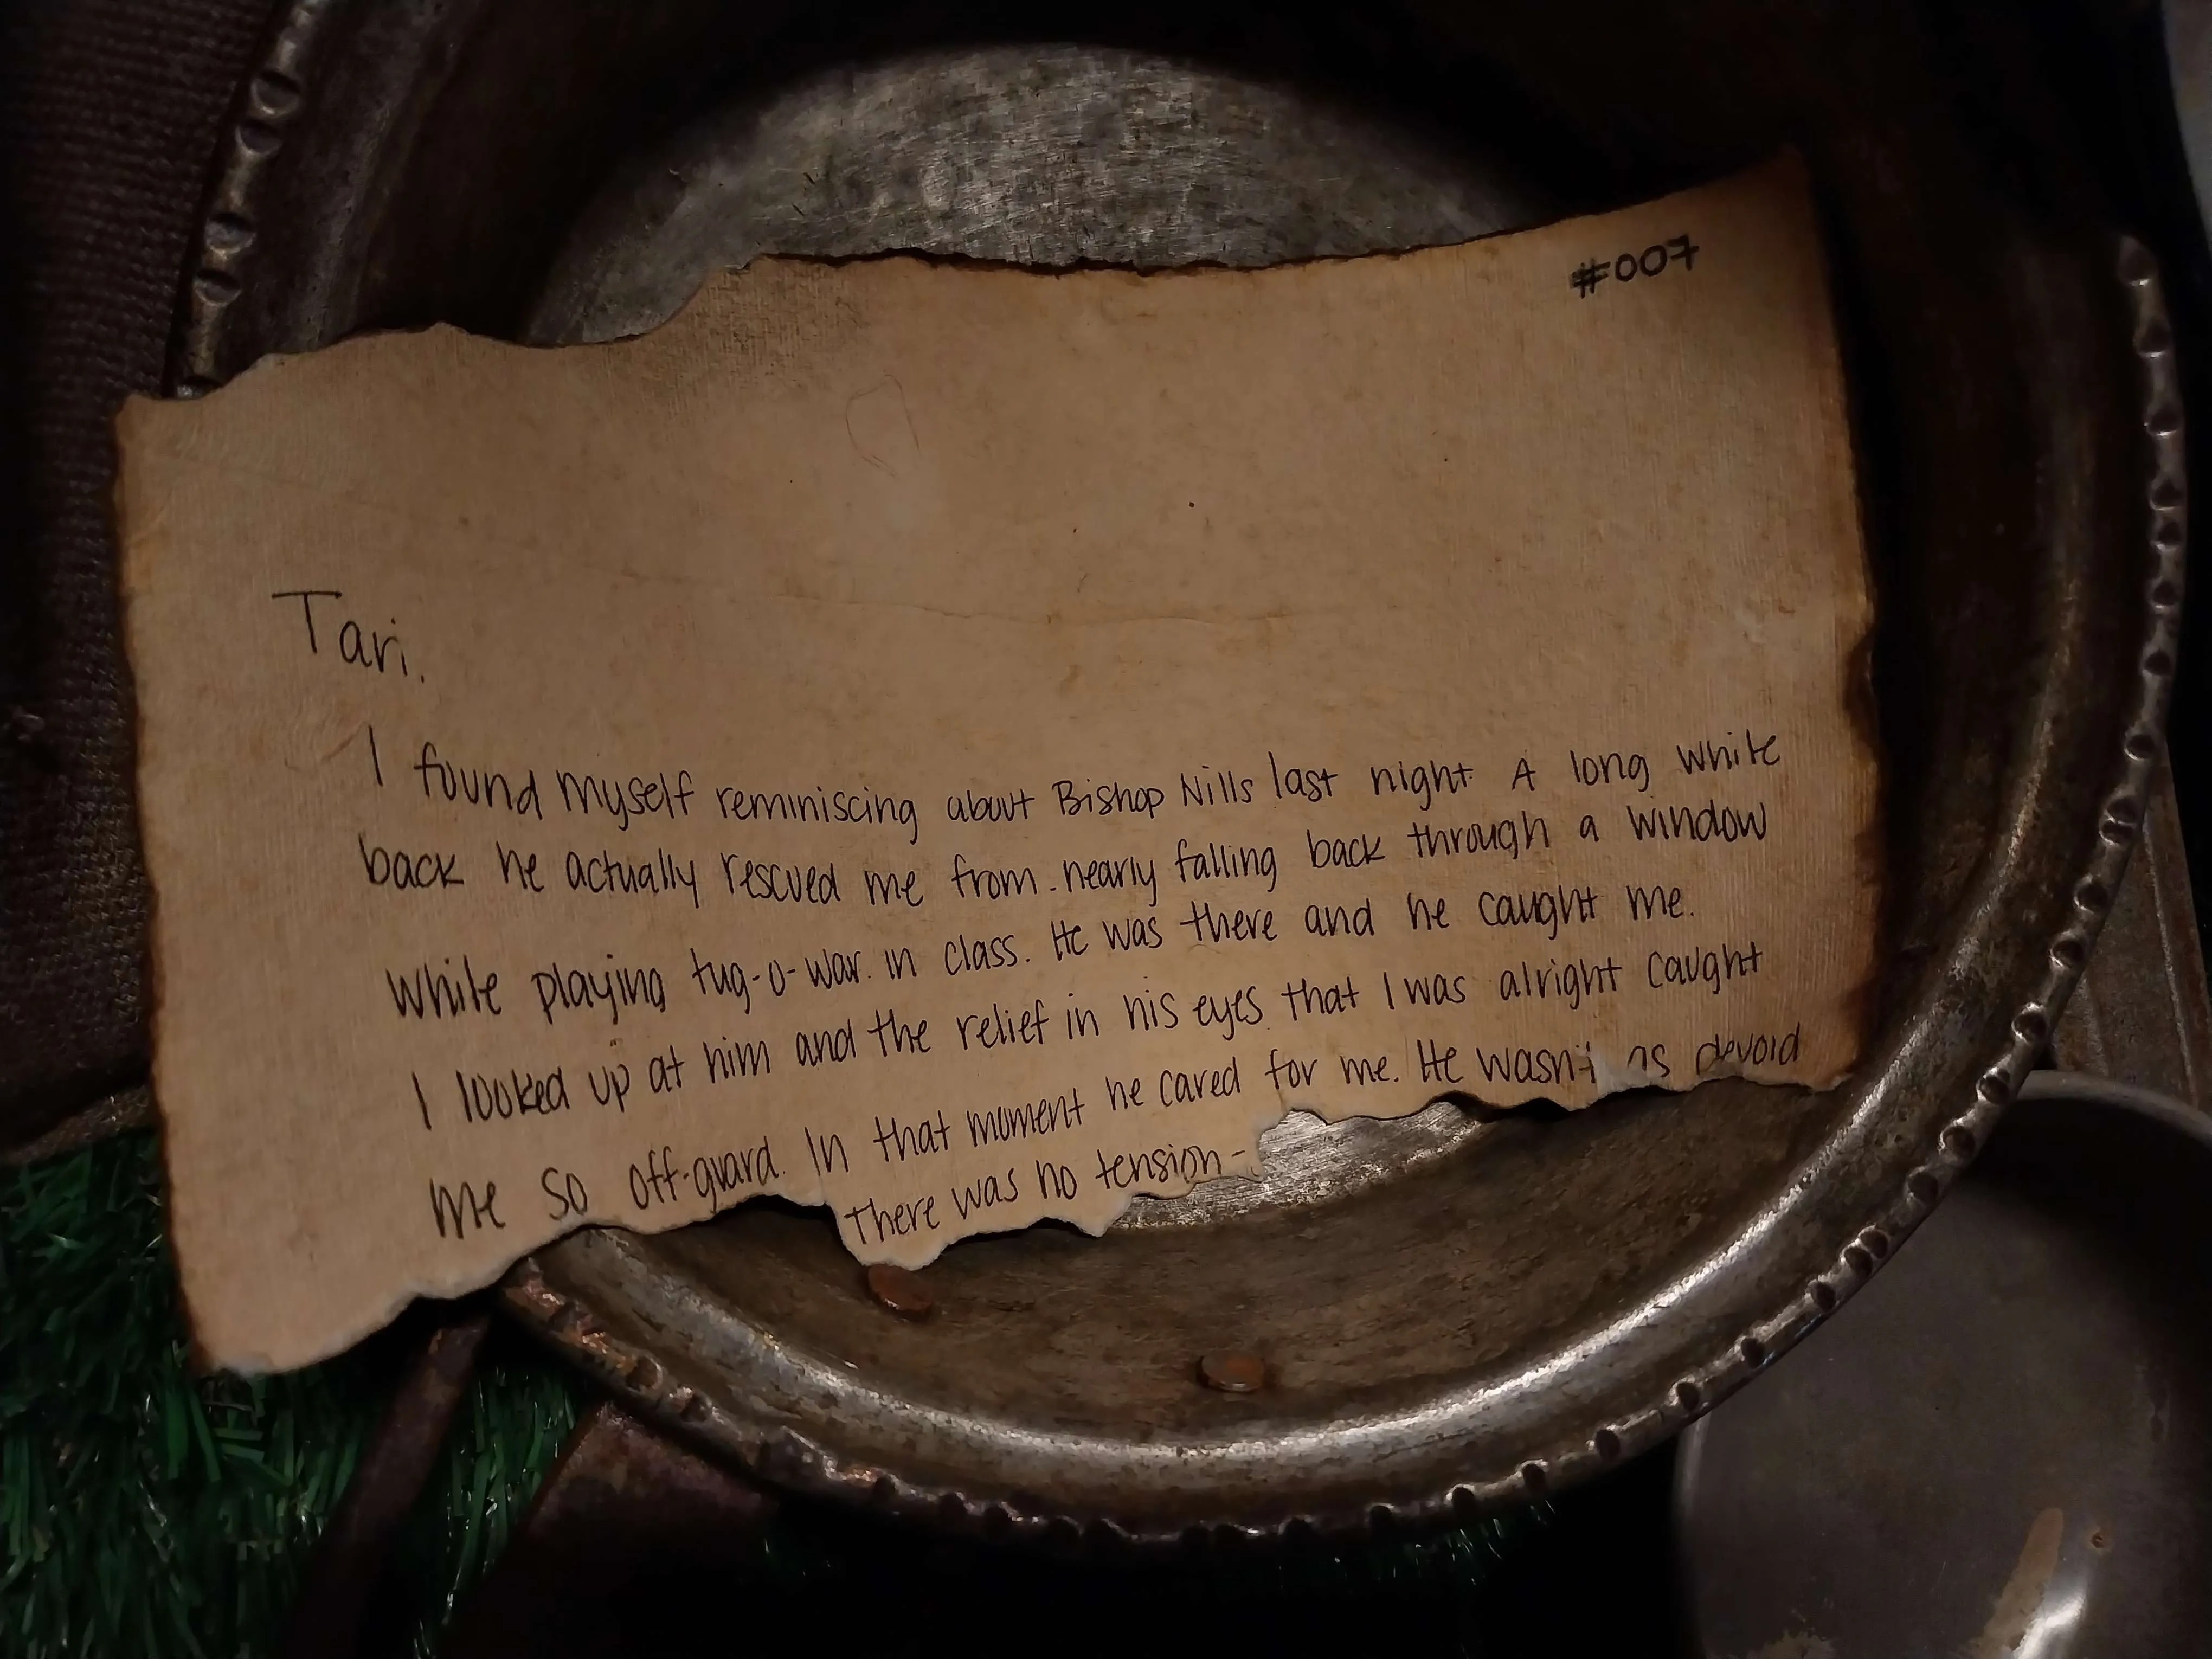 #007
Tari.
I found myself reminiscing about Bishop Nills last night. A long while
back he actually rescued me from nearly falling back through a window
while playing tug-o-war in class. He was there and he caught me.
I looked up at him and the relief in his eyes that I was alright caught
me so off-guard. In that moment he cared for me. He wasn't as devoid
There was no tension-